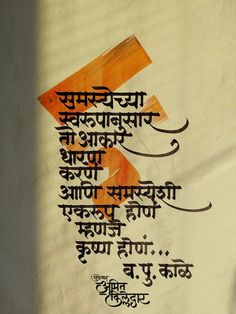 समस्येच्या
स्वरूपानुसार
तो आकार
धारण
करणं
आणि समस्येशी
एकरूप होणं
म्हणजे
कृष्ण होणं...
व. पु. काळे
अमित